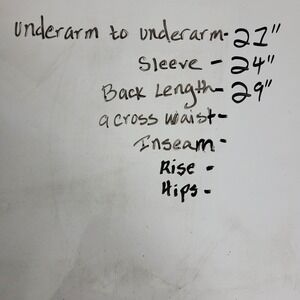 underarm to underarm- 21"
Sleeve - 24"
Back Length- 29"
across waist-
Inseam -
Rise -
Hips -